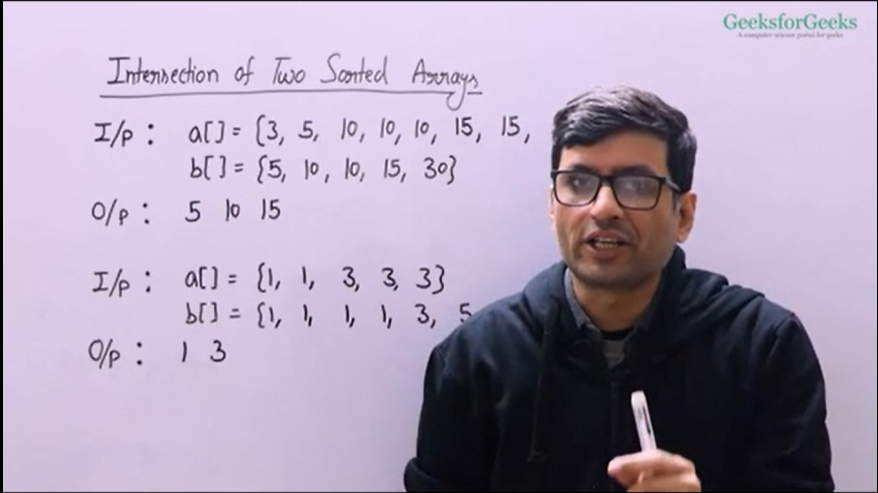 GeeksforGeeks
A computer science portal for geeks
Intersection of Two Sorted Arrays
I/p : a[] = {3, 5, 10, 10, 10, 15, 15,
b[] = {5, 10, 10, 15, 30}
O/p : 5 10 15
I/p : a[] = {1, 1, 3, 3, 3}
b[] = {1, 1, 1, 1, 3, 5
O/p : 1 3